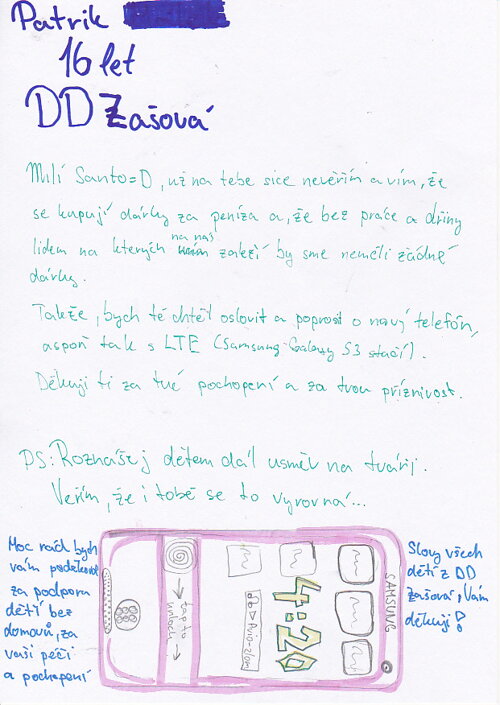 Patrik
16 let
DD Zašová
Milí Santo=D, už na tebe sice nevěřím a vím, že
se kupují dárky za peníza a, že bez práce a dřiny
lidem na kterých na nás zaleží by sme neměli žádné
dárky.
Takže, bych tě chtěl oslovit a poprosit o nový telefón,
aspoň tak s LTE (Samsung Galaxy S3 stačí).
Děkuji ti za tvé pochopení a za tvou příznivost.
PS: Roznášej dětem dál usměv na tváři.
Věřím, že i tobě se to vyrovná...
Moc rád bych
vám poděkoval
za podporu
dětí bez
domovů, za
vaši péči
a pochopení
tap to
unlock
4:20
SAMSUNG
Slovy všech
dětí z DD
Zašová, Vám
děkuji!